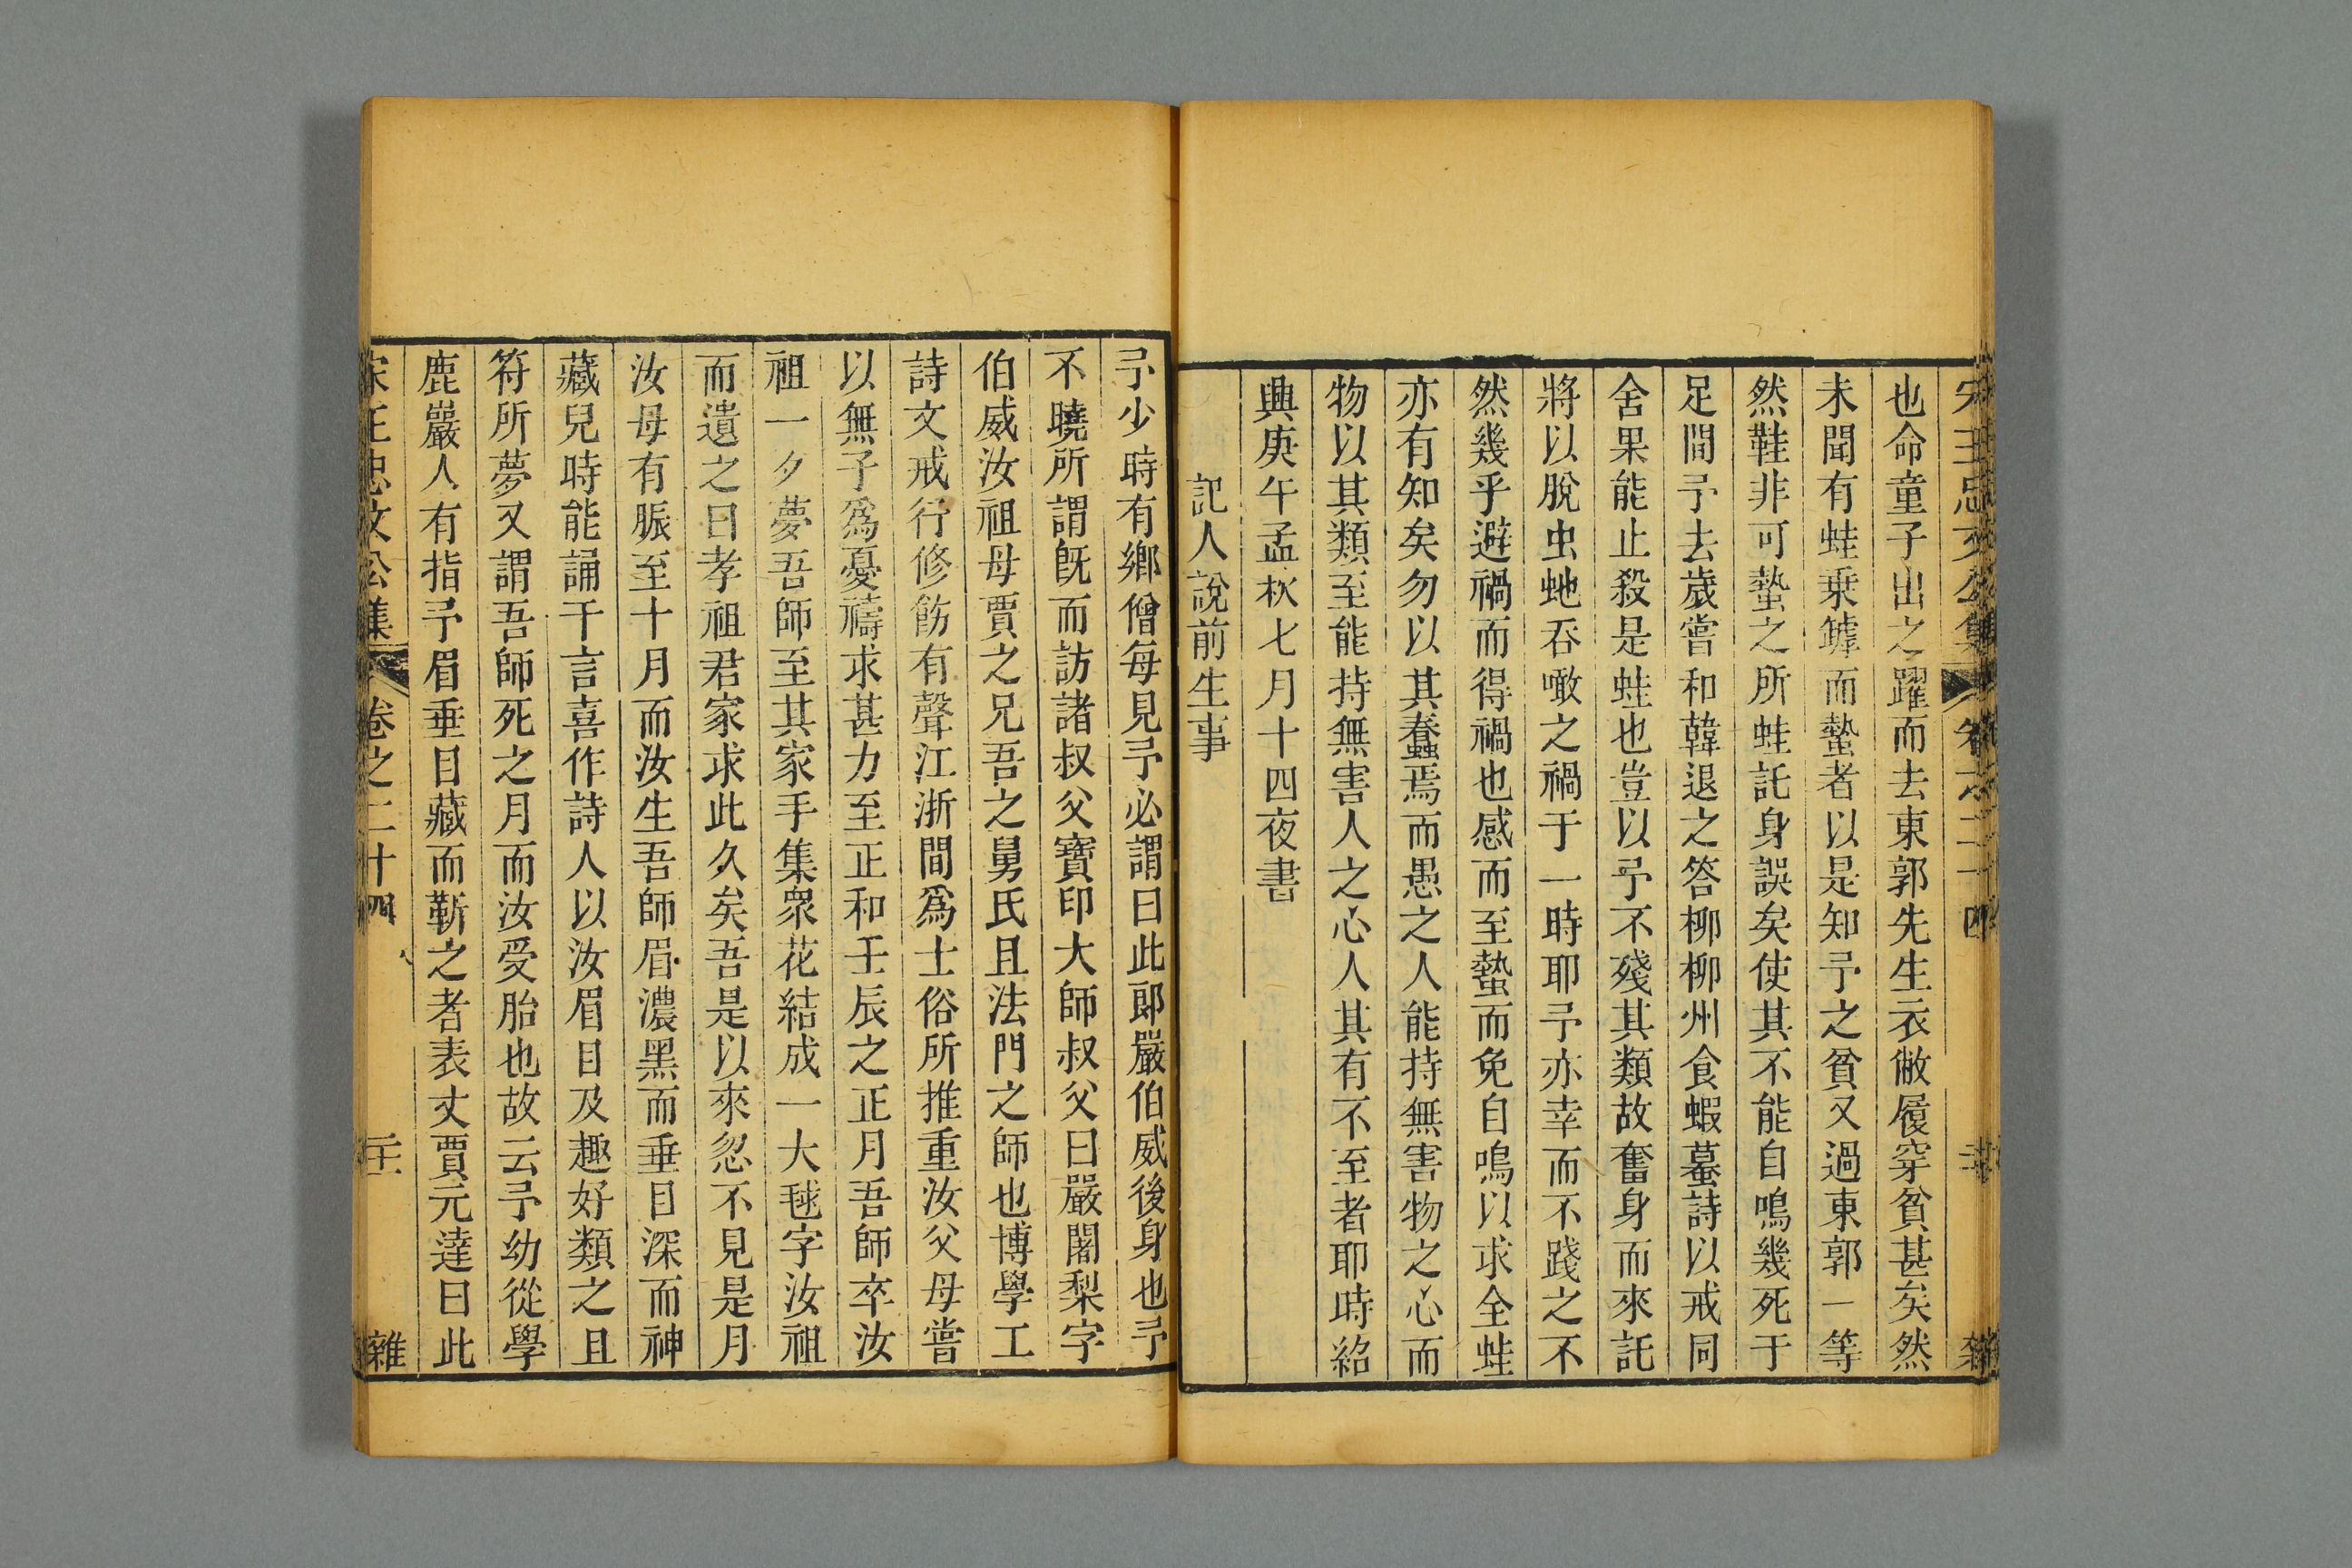 也命童子出之躍而去東郭先生衣敝履穿貧甚矣然
未聞有蛙乗罅而蟄者以是知予之貧又過東郭一等
然鞋非可蟄之所蛙託身誤矣使其不能自鳴幾死于
足間予去歲嘗和韓退之答柳柳州食蝦蟇詩以戒同
舍果能止殺是蛙也豈以予不殘其類故奮身而來託
將以脫虫虵吞噉之禍于一時耶予亦幸而不踐之不
然幾乎避禍而得禍也感而至蟄而免自鳴以求全蛙
亦有知矣勿以其蠢焉而愚之人能持無害物之心而
物以其類至能持無害人之心人其有不至者耶時紹
興庚午孟秋七月十四夜書
記人說前生事
予少時有鄉僧每見予必謂曰此郎嚴伯威後身也予
不曉所謂既而訪諸叔父寶印大師叔父曰嚴闍梨字
伯威汝祖母賈之兄吾之舅氏且法門之師也博學工
詩文戒行修飭有聲江浙間爲士俗所推重汝父母嘗
以無子爲憂禱求甚力至正和壬辰之正月吾師卒汝
祖一夕夢吾師至其家手集衆花結成一大毬字汝祖
而遺之曰孝祖君家求此久矣吾是以來忽不見是月
汝母有脤至十月而汝生吾師眉濃黑而垂目深而神
藏兒時能誦千言喜作詩人以汝眉目及趣好類之且
符所夢又謂吾師死之月而汝受胎也故云予幼從學
鹿巖人有指予眉垂目藏而靳之者表丈賈元達曰此
宋王忠文公集 卷之二十四 雜